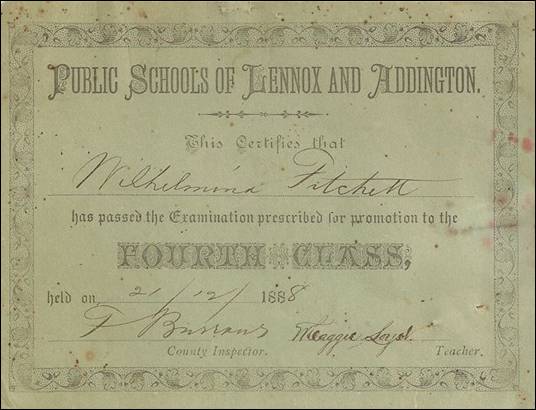 PUBLIC SCHOOLS OF LENNOX AND ADDINGTON.
This Certifies that
Wilhelmina Fitchett
has passed the Examination prescribed for promotion to the
FOURTH CLASS,
held on 21/12/ 1888
F Burrows Maggie
County Inspector. Teacher.